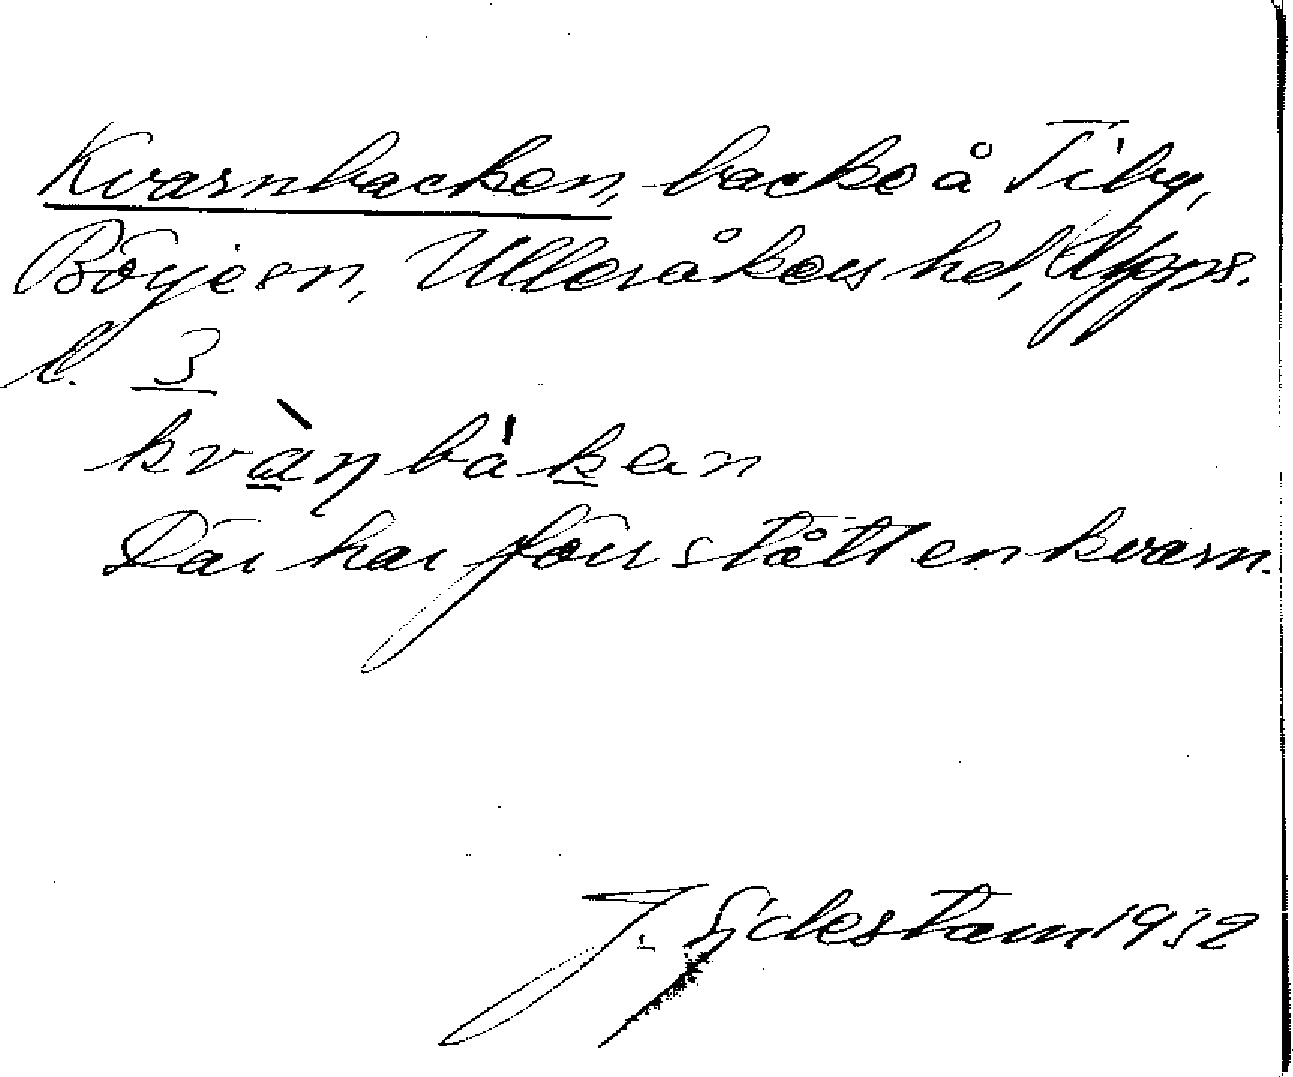 Kvarnbacken, backe å Tiby,
Börje sn, Ulleråkers hd, Upps.
l. 3
kvàn bàkan
Där har förr stått en kvarn.
J. Sjdestam 1932